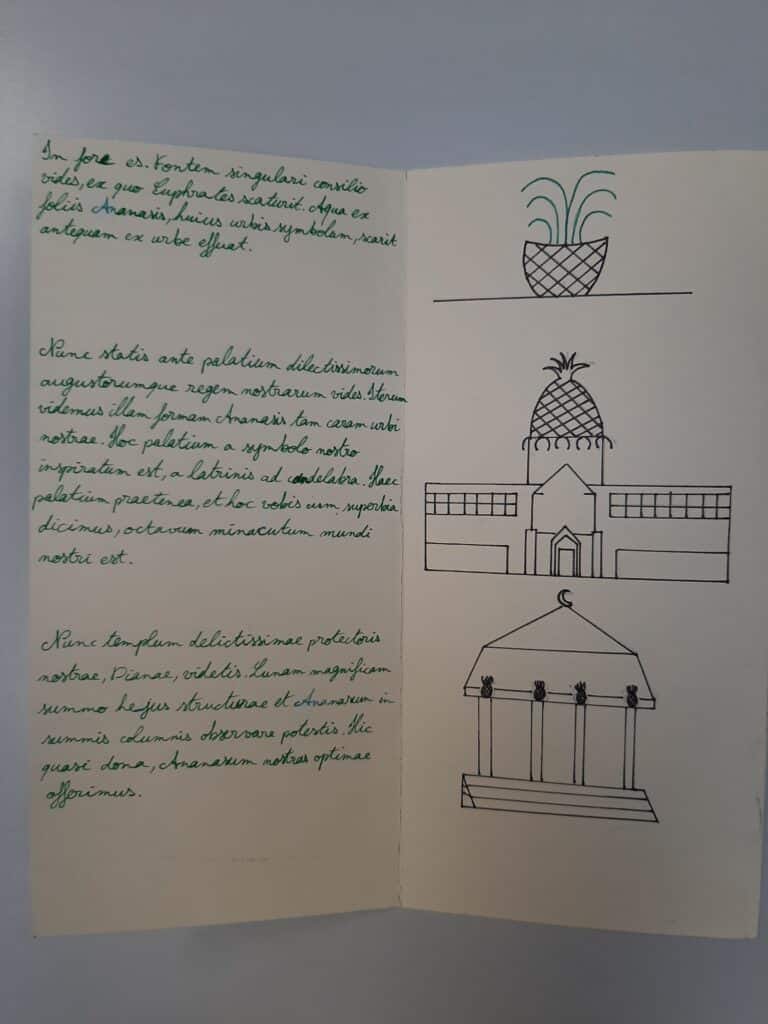 In fore es. Fontem singulari consilio
vides, ex quo Euphrates scaturit. Aqua ex
foliis Ananasis, huius urbis symbolam, scarit
antequam ex urbe effuat.
Nunc statis ante palatium dilectissimorum
augustorumque regem nostrarum vides. Iterum
videmus illam formam Ananasis tam caram urbi
nostrae. Hoc palatium a symbolo nostro
inspiratum est, a latrinis ad candelabra. Haec
palatium praeterea, et hoc vobis cum superbia
dicimus, octavum miraculum mundi
nostri est.
Nunc templum delictissimae protectoris
nostrae, Dianae, videtis. Lunam magnificam
summo hejus structurae et Ananasum in
summis columnis observare potestis. Hic
quasi dona, Ananasum nostras optimae
offerimus.